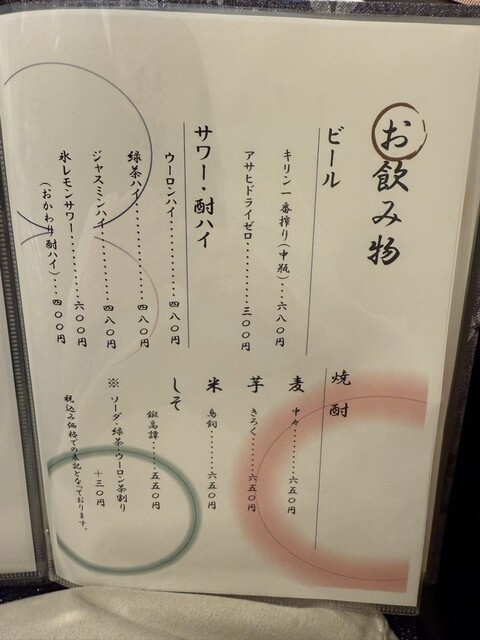 お飲み物
ビール
キリン一番搾り（中瓶）…六八〇円
アサヒドライゼロ…………三〇〇円
サワー・酎ハイ
ウーロンハイ…………四八〇円
緑茶ハイ…………四八〇円
ジャスミンハイ…………四八〇円
氷レモンサワー…………六〇〇円
（おかわり酎ハイ）…四〇〇円
焼酎
麦 中々…………六五〇円
芋 きろく…………六五〇円
米 鳥飼…………六五〇円
しそ 鍛高譚…………五五〇円
※ ソーダ・緑茶・ウーロン茶割り
＋三〇円
税込み価格での表記となっております。